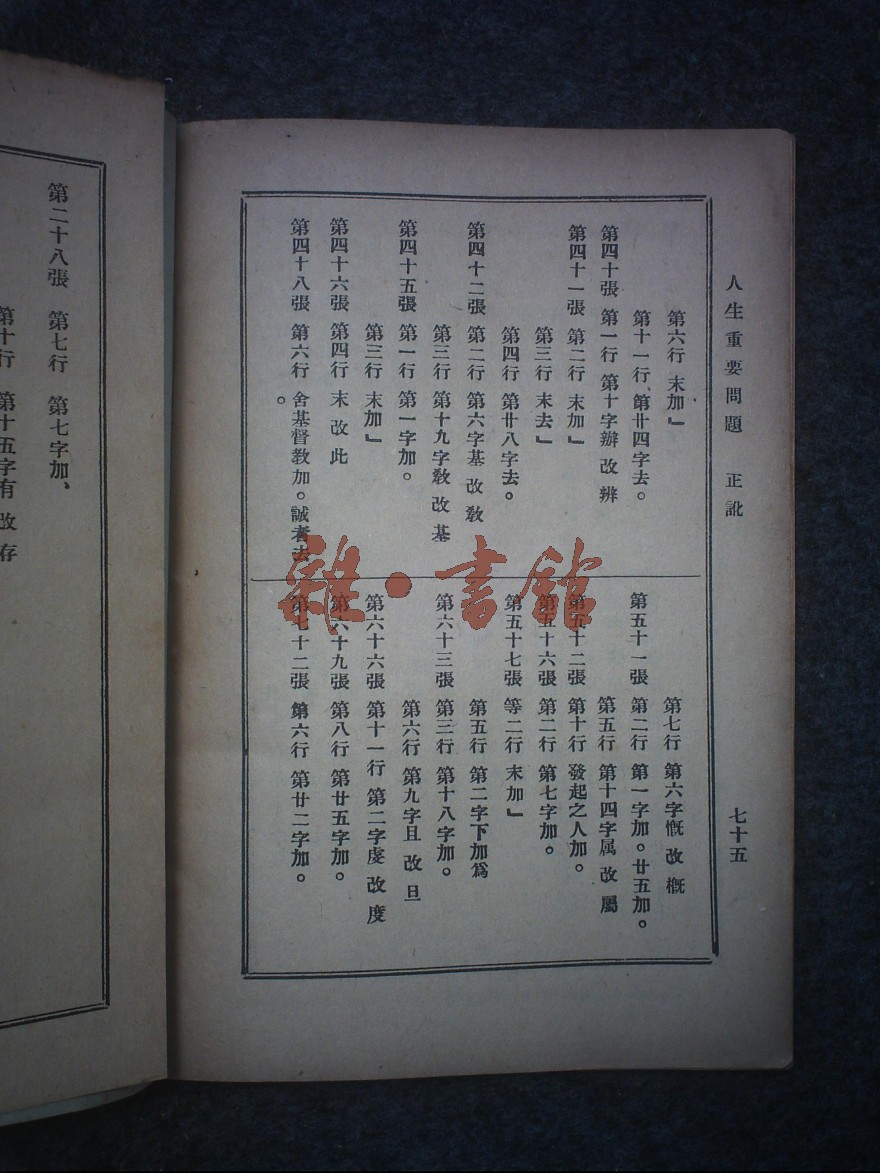 人生重要問題　正訛
七十五
第六行 末加』
第十一行 第廿四字去。
第四十張 第一行 第十字辦 改 辨
第四十一張 第二行 末加』
第三行 末去』
第四行 第廿八字去。
第四十二張 第二行 第六字基 改 教
第三行 第十九字教 改 基
第四十五張 第一行 第一字加。
第三行 末加』
第四十六張 第四行 末 改 此
第四十八張 第六行 舍基督教加。誠者去
。
第七行 第六字慨 改 概
第五十一張 第二行 第一字加。廿五加。
第五行 第十四字属 改 屬
第五十二張 第十行 發起之人加。
第五十六張 第二行 第七字加。
第五十七張 等二行 末加』
第五行 第二字下加爲
第六十三張 第三行 第十八字加。
第六行 第九字且 改 旦
第六十六張 第十一行 第二字 改 度
第六十九張 第八行 第廿五字加。
第七十二張 第六行 第廿二字加。
第二十八張 第七行 第七字加、
第十行 第十五字有 改 存
雜·書館